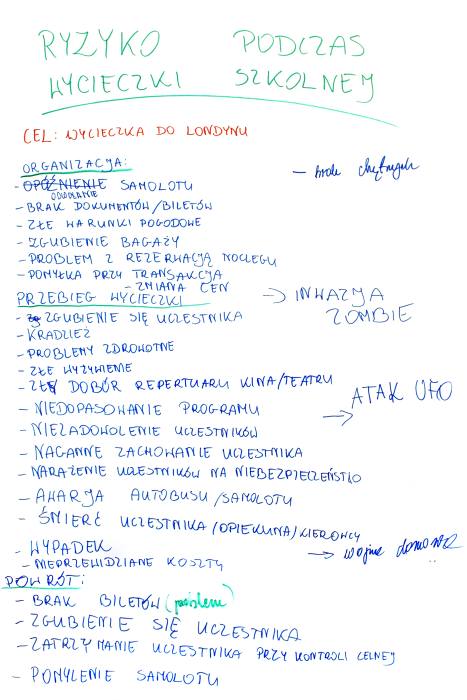 RYZYKO PODCZAS
WYCIECZKI SZKOLNEJ
CEL: WYCIECZKA DO LONDYNU
ORGANIZACJA:
- brak chętnych
- OPÓŹNIENIE SAMOLOTU
ODWOŁANIE
- BRAK DOKUMENTÓW/BILETÓW
- ZŁE WARUNKI POGODOWE
- ZGUBIENIE BAGAŻY
- PROBLEM Z REZERWACJĄ NOCLEGU
- POMYŁKA PRZY TRANSAKCJA
- ZMIANA CEN
PRZEBIEG WYCIECZKI
→ INWAZJA
ZOMBIE
- ZGUBIENIE SIĘ UCZESTNIKA
- KRADZIEŻ
- PROBLEMY ZDROWOTNE
- ZŁE WYŻYWIENIE
- ZŁY DOBÓR REPERTUARU KINA/TEATRU
→ ATAK UFO
- NIEDOPASOWANIE PROGRAMU
- NIEZADOWOLENIE UCZESTNIKÓW
- NAGANNE ZACHOWANIE UCZESTNIKA
- NARAŻENIE UCZESTNIKÓW NA NIEBEZPIECZEŃSTWO
- AWARJA AUTOBUSU/SAMOLOTU
- ŚMIERĆ UCZESTNIKA/OPIEKUNA/KIEROWCY
- WYPADEK
→ wojna domowa
- NIEPRZEWIDZIANE KOSZTY
POWRÓT:
- BRAK BILETÓW
- ZGUBIENIE SIĘ UCZESTNIKA
- ZATRZYMANIE UCZESTNIKA PRZY KONTROLI CELNEJ
- POMYLENIE SAMOLOTU